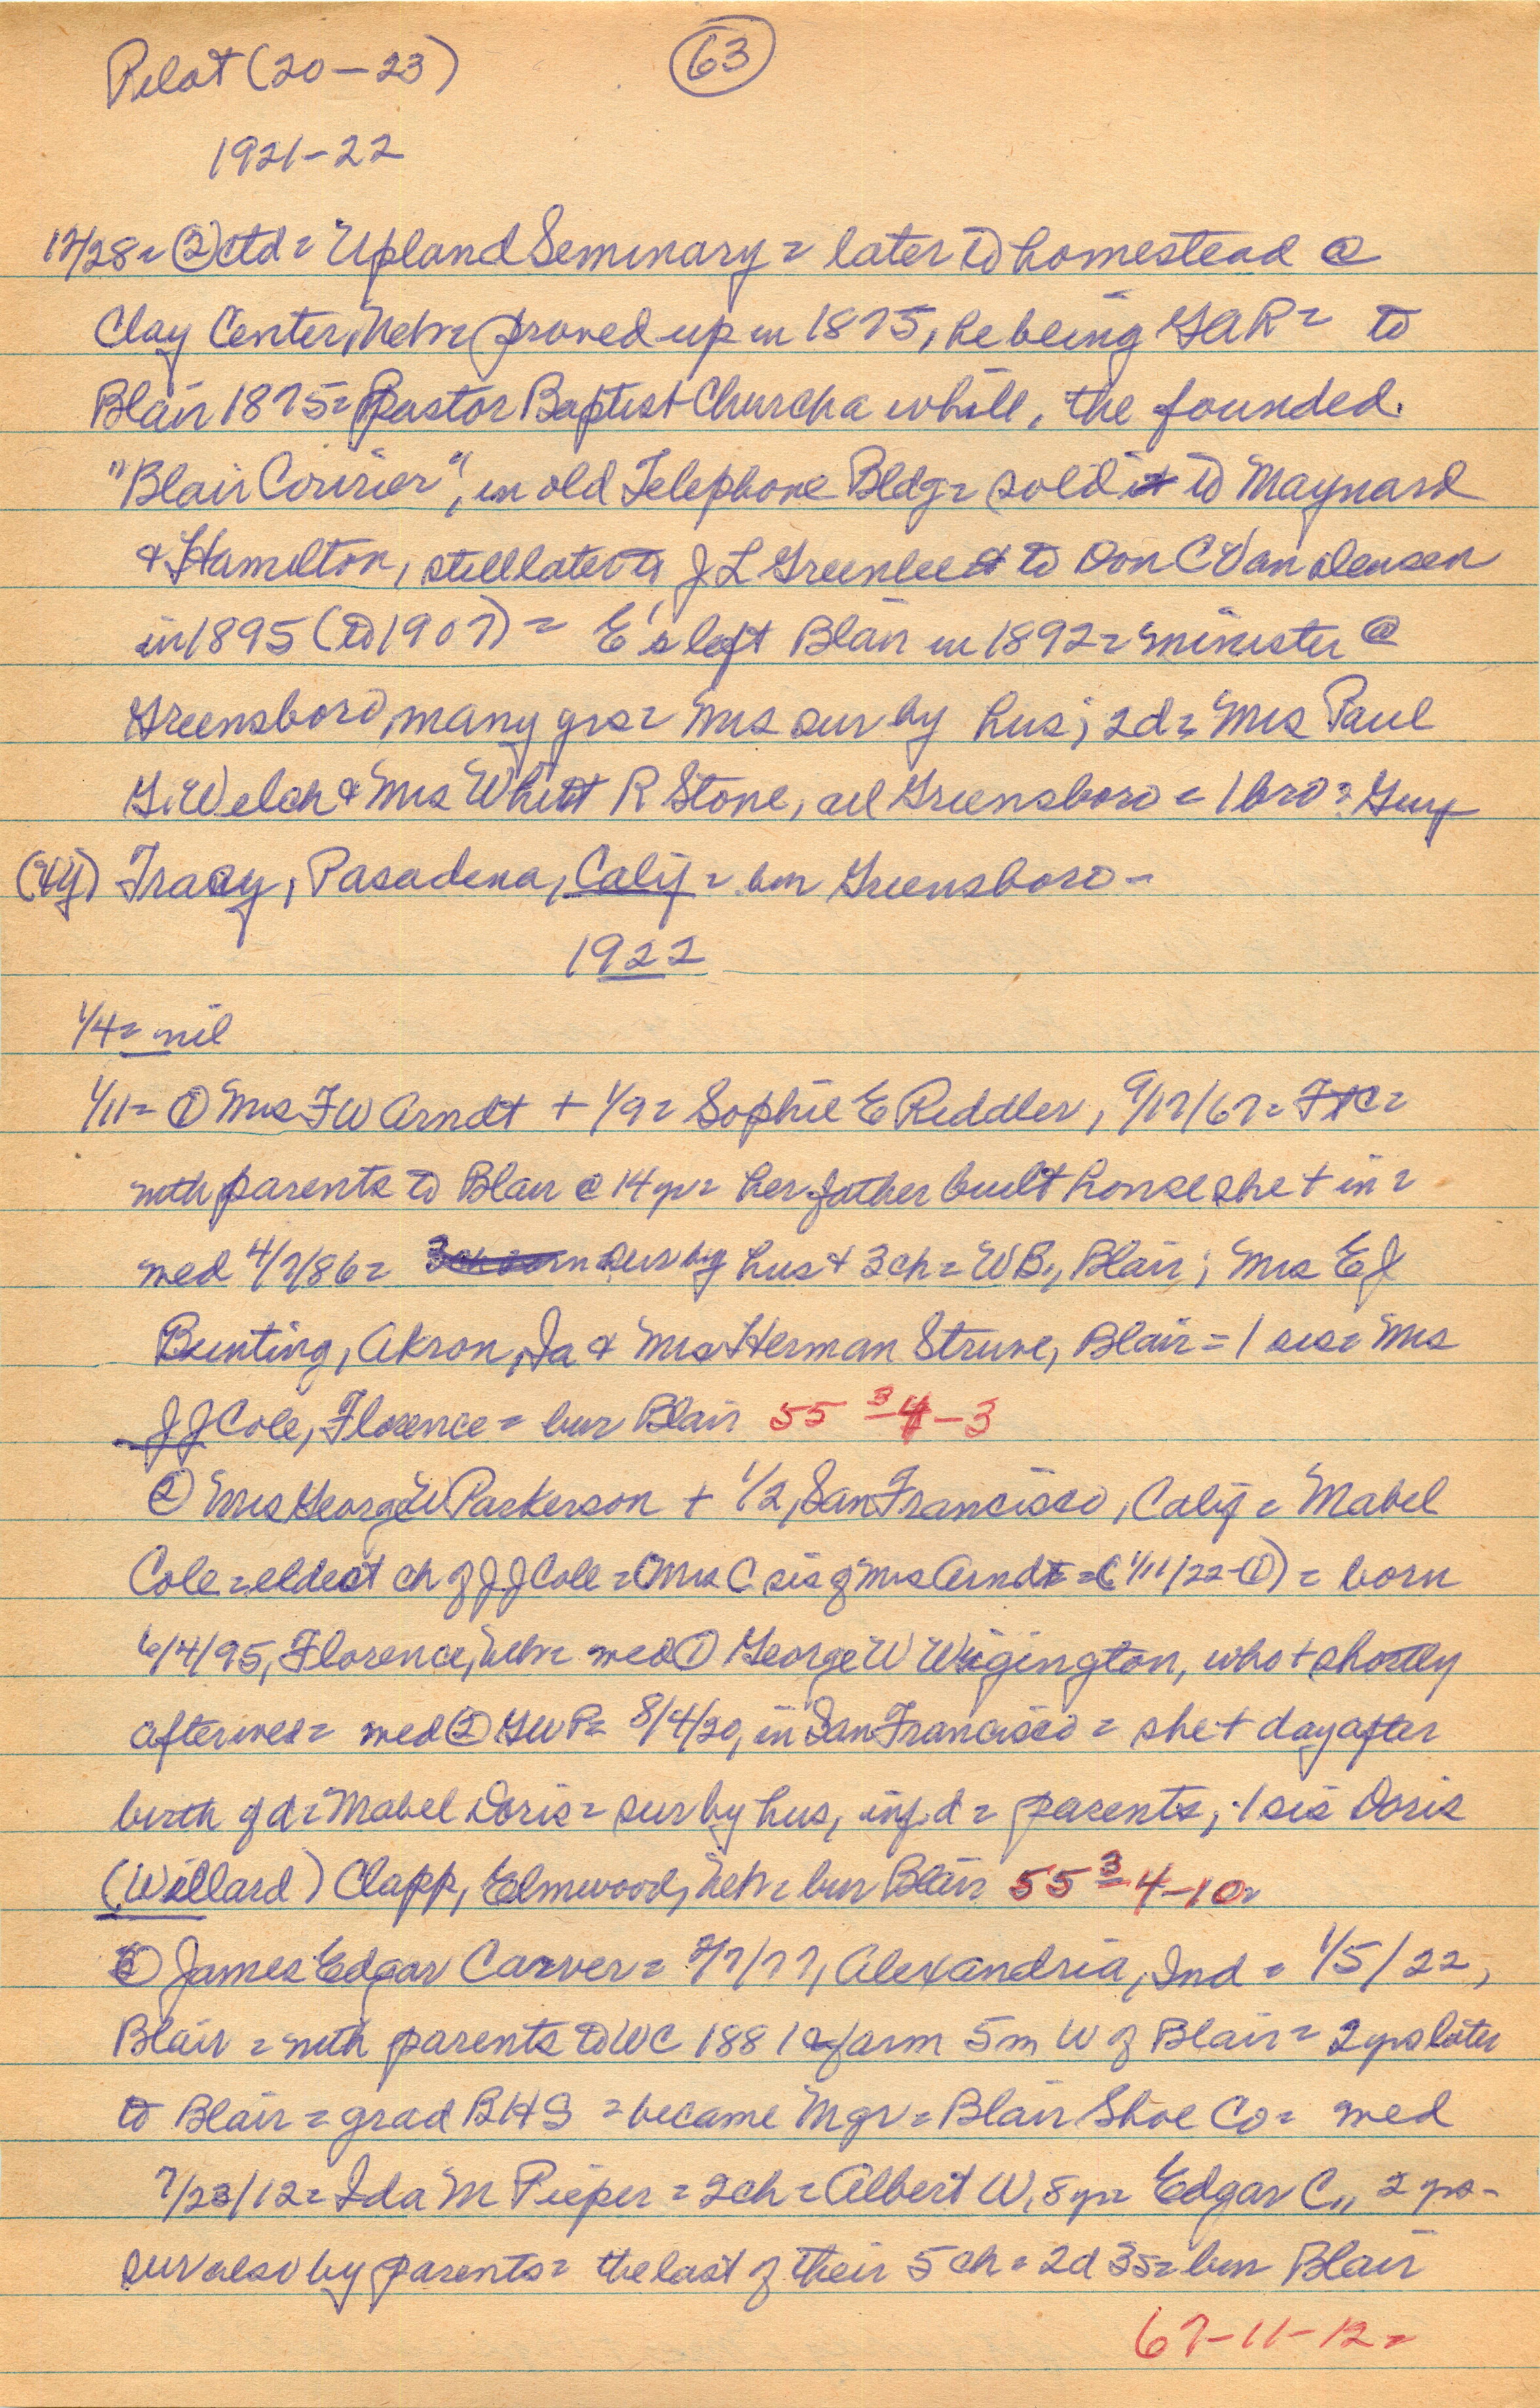 Pilot (20-23) 63
1921-22
12/28= ② ctd = Upland Seminary = later to homestead @
Clay Center, Nebr= proved up in 1875, he being GAR= to
Blair 1875= Pastor Baptist Church a while, the founded
"Blair Courier", in old Telephone Bldg= sold it to Maynard
& Hamilton, still later to J L Greenlee & to Don C Van Deusen
in 1895 (to 1907) = E's left Blair in 1892= minister @
Greensboro, many yrs= Mrs sur by hus; 2d= Mrs Paul
G. Welch & Mrs Whitt R Stone, all Greensboro = 1 bro= Guy
Tracy, Pasadena, Calif = bur Greensboro-
1922
1/4= nil
1/11= ① Mrs F W Arndt + 1/9= Sophie E Riddler, 9/17/67= Ft C=
with parents to Blair @ 14 yr= her father built house she + in=
med 4/7/86= sur by hus & 3 ch= W B., Blair; Mrs E J
Bunting, Akron, Ia & Mrs Herman Struve, Blair= 1 sis= Mrs
J J Cole, Florence= bur Blair 55 3-4-3
② Mrs George W Parkerson + 1/2, San Francisco, Calif= Mabel
Cole= eldest ch of J J Cole= (Mrs C sis of Mrs Arndt= (1/11/22-①) = born
6/4/95, Florence, Nebr= med ① George W Wigington, who + shortly
after med= med ② G W P= 8/4/20, in San Francisco = she + day after
birth of d= Mabel Doris= sur by hus, inf d= parents; 1 sis Doris
(Willard) Clapp, Elmwood, Nebr= bur Blair 55 3-4-10=
③ James Edgar Carver= 7/7/77, Alexandria, Ind = 1/5/22,
Blair = with parents to WC 1881 @ farm 5m W of Blair= 2 yrs later
to Blair= grad BHS = became Mgr= Blair Shoe Co= med
7/23/12= Ida M Pieper= 2ch= Albert W, 8 yr= Edgar C., 2 yrs-
sur also by parents= the last of their 5 ch= 2d 3s= bur Blair
67-11-12=